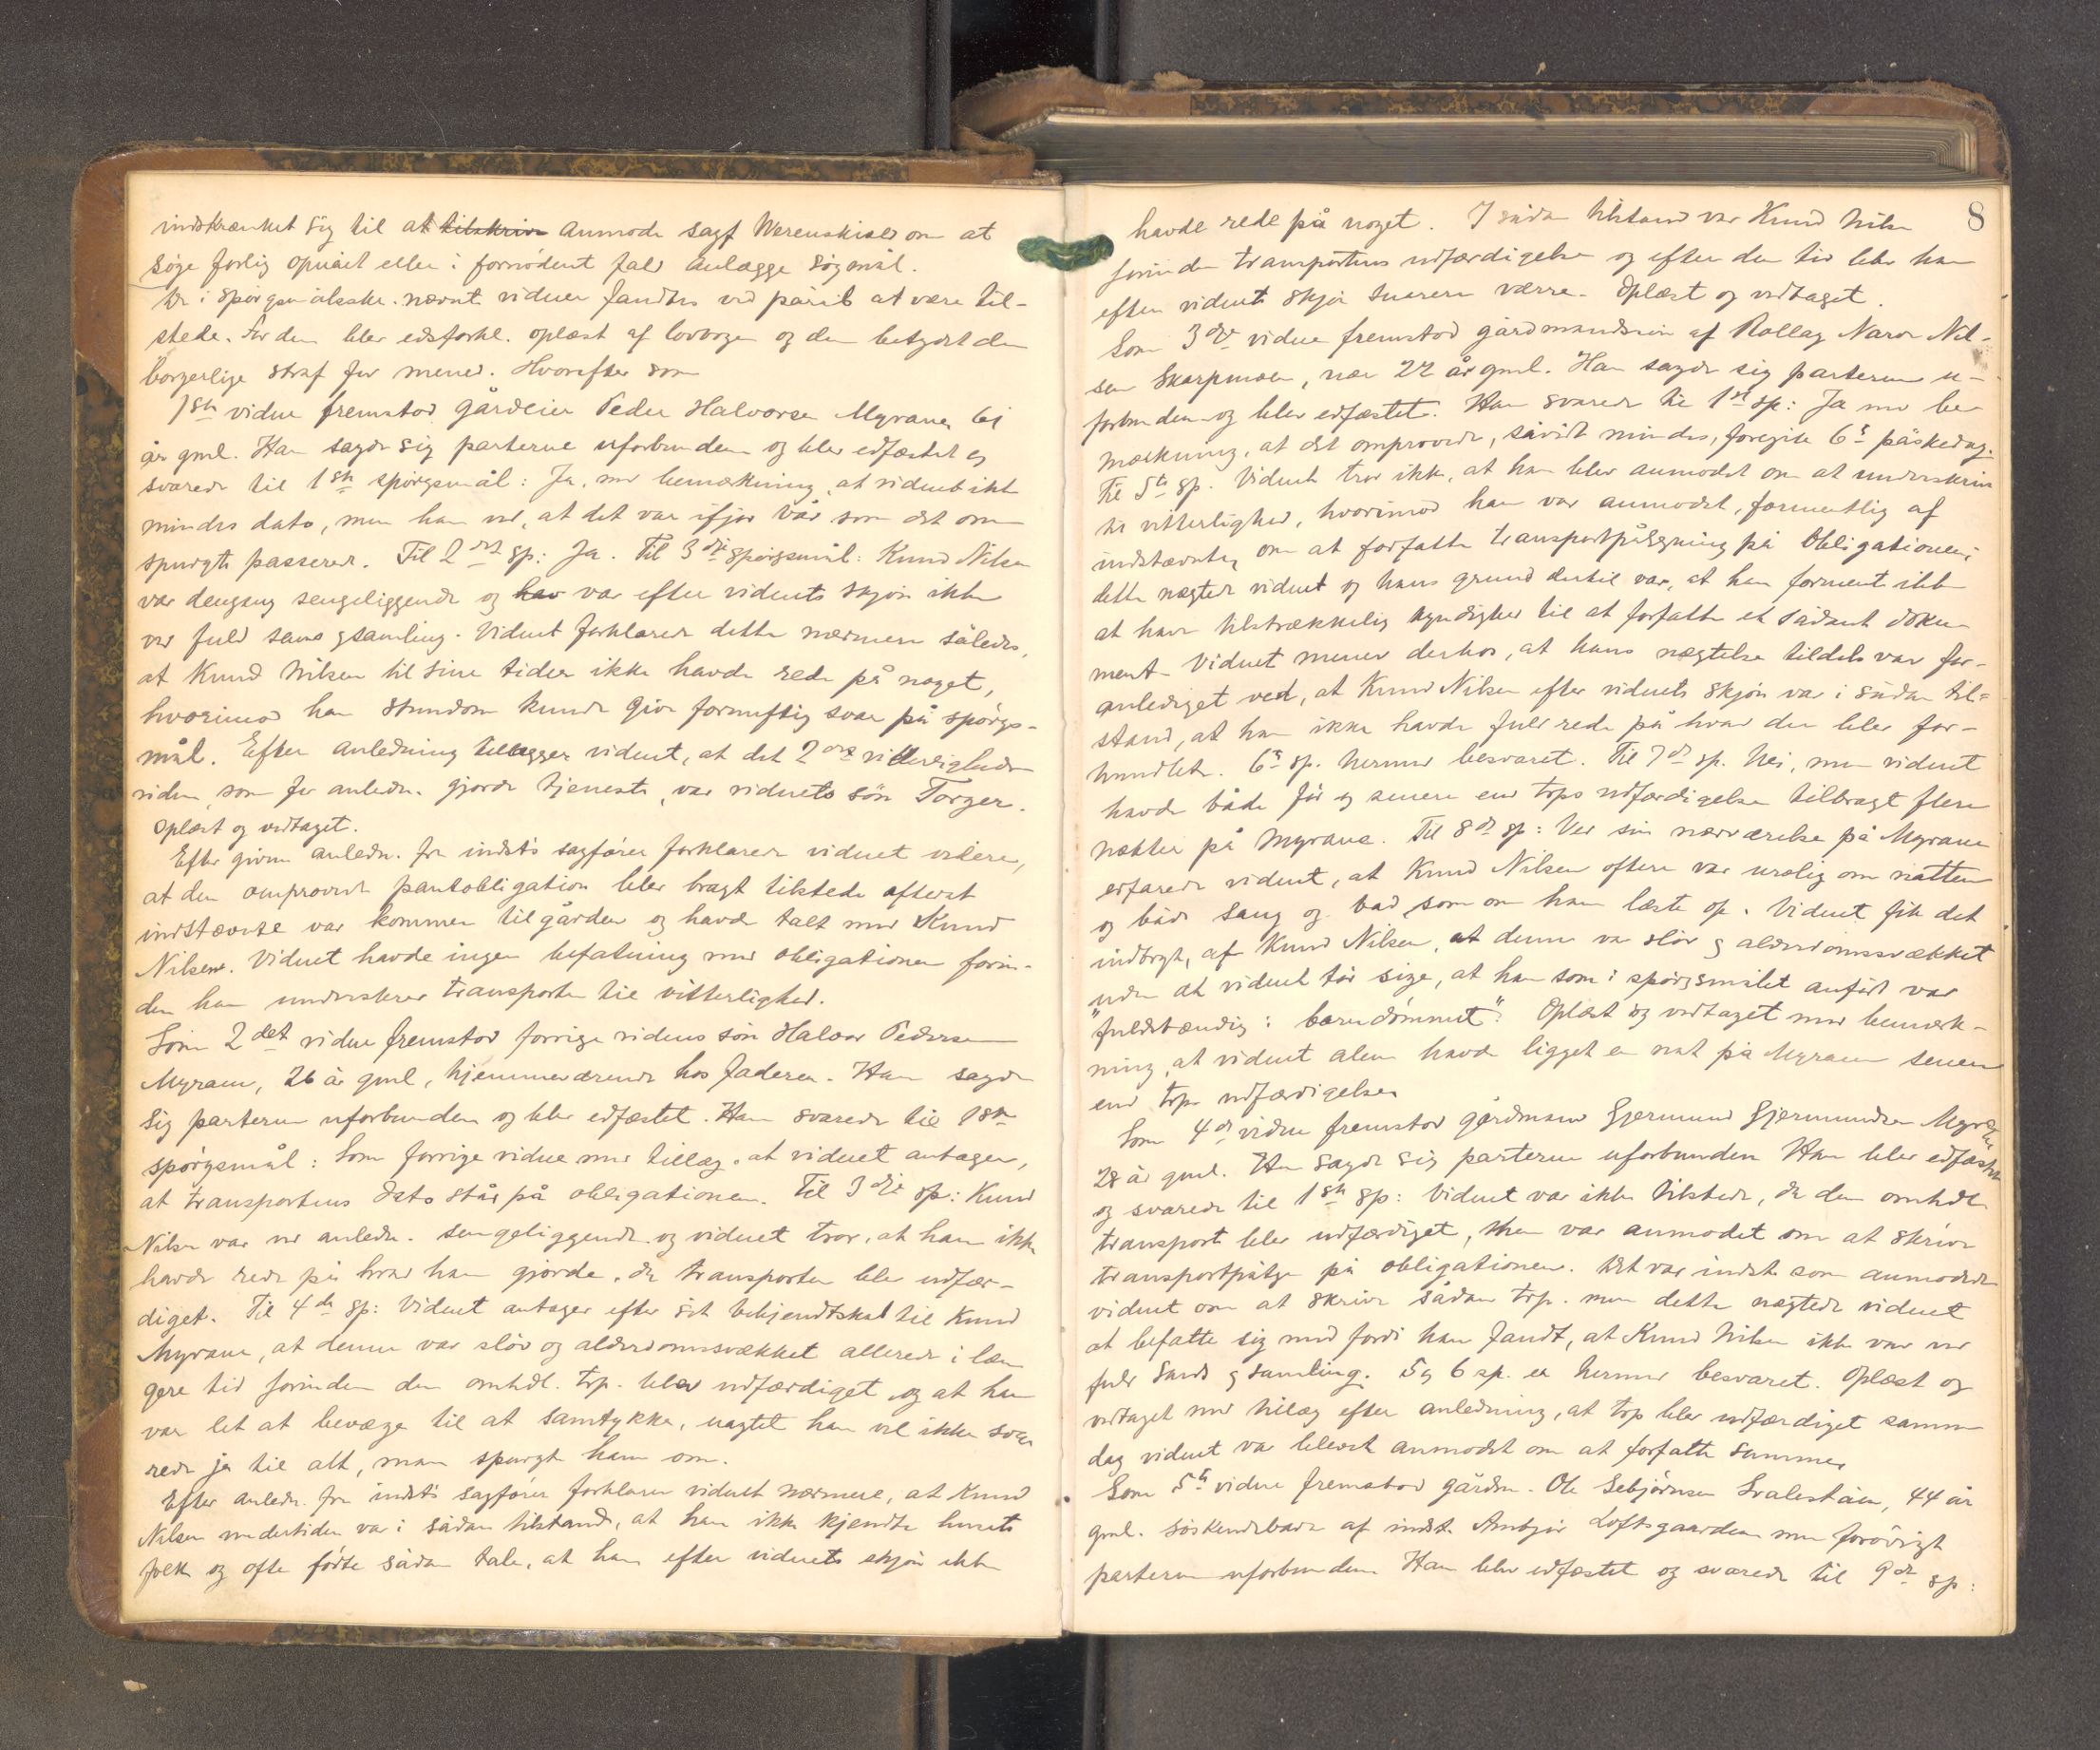 indskrænket sig til at tilskrive anmode sagf Werenskiold om at
søge forlig opnået eller i fornødent fald anlægge søgsmål.
De i spørgsmålsskr. nævnte vidner fandtes ved påråb at være til-
stede. For dem blev edsforkl. oplæst af lovbogen og dem betydet den
borgerlige straf for mened. Hvorefter som
1ste vidne fremstod gårdeier Peder Halvorsen Myrane, 61
år gml. Han sagde sig parterne uforbunden og blev edfæstet og
svarede til 1ste spørgsmål: Ja, med bemærkning, at vidnet ikke
mindes dato, men han ved, at det var ifjor vår som det om
spurgte passerede. Til 2det sp: Ja. Til 3die spørgsmål: Knud Nilsen
var dengang sengeliggende og hav var efter vidnets skjøn ikke
ved fuld sans og samling. Vidnet forklarer dette nærmere således,
at Knud Nilsen til sine tider ikke havde rede på noget,
hvorimod han stundom kunde give fornuftig svar på spørgs-
mål. Efter anledning tillægger vidnet, at det 2det vitterligheds
vidne, som for anledn. gjorde tjeneste, var vidnets søn Torger.
Oplæst og vedtaget.
Efter given anledn. fra indst's sagfører forklarer vidnet videre,
at den omprovede pantobligation blev bragt tilstede efterat
indstævnte var kommen til gården og havde talt med Knud
Nilsen. Vidnet havde ingen befatning med obligationen forin-
den han underskrev transporten til vitterlighed.
Som 2det vidne fremstod forrige vidnes søn Halvor Pedersen
Myrane, 26 år gml, hjemmeværende hos faderen. Han sagde
sig parterne uforbunden og blev edfæstet. Han svarede til 1ste
spørgsmål: Som forrige vidne med tillæg, at vidnet antager,
at transportens dato står på obligationen. Til 3die sp: Knud
Nilsen var ved anledn. sengeliggende og vidnet tror, at han ikke
havde rede på hvad han gjorde, da transporten blev udfær-
diget. Til 4de sp: Vidnet antager efter sit bekjendtskab til Knud
Myrane, at denne var sløv og alderdomssvækket allerede i læn
gere tid forinden den omhdl. trp. blev udfærdiget og at han
var let at bevæge til at samtykke, uagtet han vel ikke sva
rede ja til alt, man spurgte ham om.
Efter anledn. fra indst's sagfører forklarer vidnet nærmere, at Knud
Nilsen undertiden var i sådan tilstand, at han ikke kjendte husets
folk og ofte førte sådan tale, at han efter vidnets skjøn ikke
8
havde rede på noget. I sådan tilstand var Knud Nilsen
forinden transportens udfærdigelse og efter den tid blev han
efter vidnets skjøn snarere værre. Oplæst og vedtaget.
Som 3die vidne fremstod gårdmandssøn af Rollag Narve Nil-
sen Skarpmoen, nær 22 år gml. Han sagde sig parterne u-
forbunden og blev edfæstet. Han svarede til 1st sp: Ja med be
mærkning, at det omprovede, såvidt mindes, foregik 6te påskedag.
Til 5te sp. Vidnet tror ikke, at han blev anmodet om at underskrive
til vitterlighed, hvorimod han var anmodet, formentlig af
indstævnte, om at forfatte transportpåtegning på obligationen;
dette nægtede vidnet og hans grund dertil var, at han formente ikke
at have tilstrækkelig kyndighed til at forfatte et sådant doku
ment. Vidnet mener derhos, at hans nægtelse tildels var for-
anlediget ved, at Knud Nilsen efter vidnets skjøn var i sådan til-
stand, at han ikke havde fuld rede på hvad der blev for-
handlet. 6te sp. hermed besvaret. Til 7de sp. Nei, men vidnet
havde både før og senere end trps udfærdigelse tilbragt flere
nætter på Myrane. Til 8de sp: Ved sin nærværelse på Myrane
erfarede vidnet, at Knud Nilsen oftere var urolig om natten
og både sang og bad, som om han læste op. Vidnet fik det
indtryk af Knud Nilsen, at denne var sløv og alderdomssvækket
uden at vidnet tør sige, at han som i spørgsmålet anført var
"fuldstændig i barndommet". Oplæst og vedtaget med bemærk-
ning, at vidnet alene havde ligget en nat på Myrane senere
end trps udfærdigelse.
Som 4de vidne fremstod gårdmand Gjermund Gjermundsen
28 år gml. Han sagde sig parterne uforbunden Han blev edfæstet
og svarede til 1ste sp: Vidnet var ikke tilstede, da den omhdl.
transport blev udfærdiget, men var anmodet om at skrive
transportpåtgn på obligationen. Det var indst. som anmodede
vidnet om at skrive sådan trp. men dette nægtede vidnet
at befatte sig med fordi han fandt, at Knud Nilsen ikke var ved
fuld sands og samling. 5 og 6 sp. er hermed besvaret. Oplæst og
vedtaget med tillæg efter anledning, at trp blev udfærdiget samme
dag vidnet var blevet anmodet om at forfatte samme.
Som 5te vidne fremstod gårdm. Ole Sebjørnsen 44 år
gml. søskendebarn af indst. Ambjør Loftsgaarden men forøvrigt
parterne uforbunden. Han blev edfæstet og svarede til 9de sp: